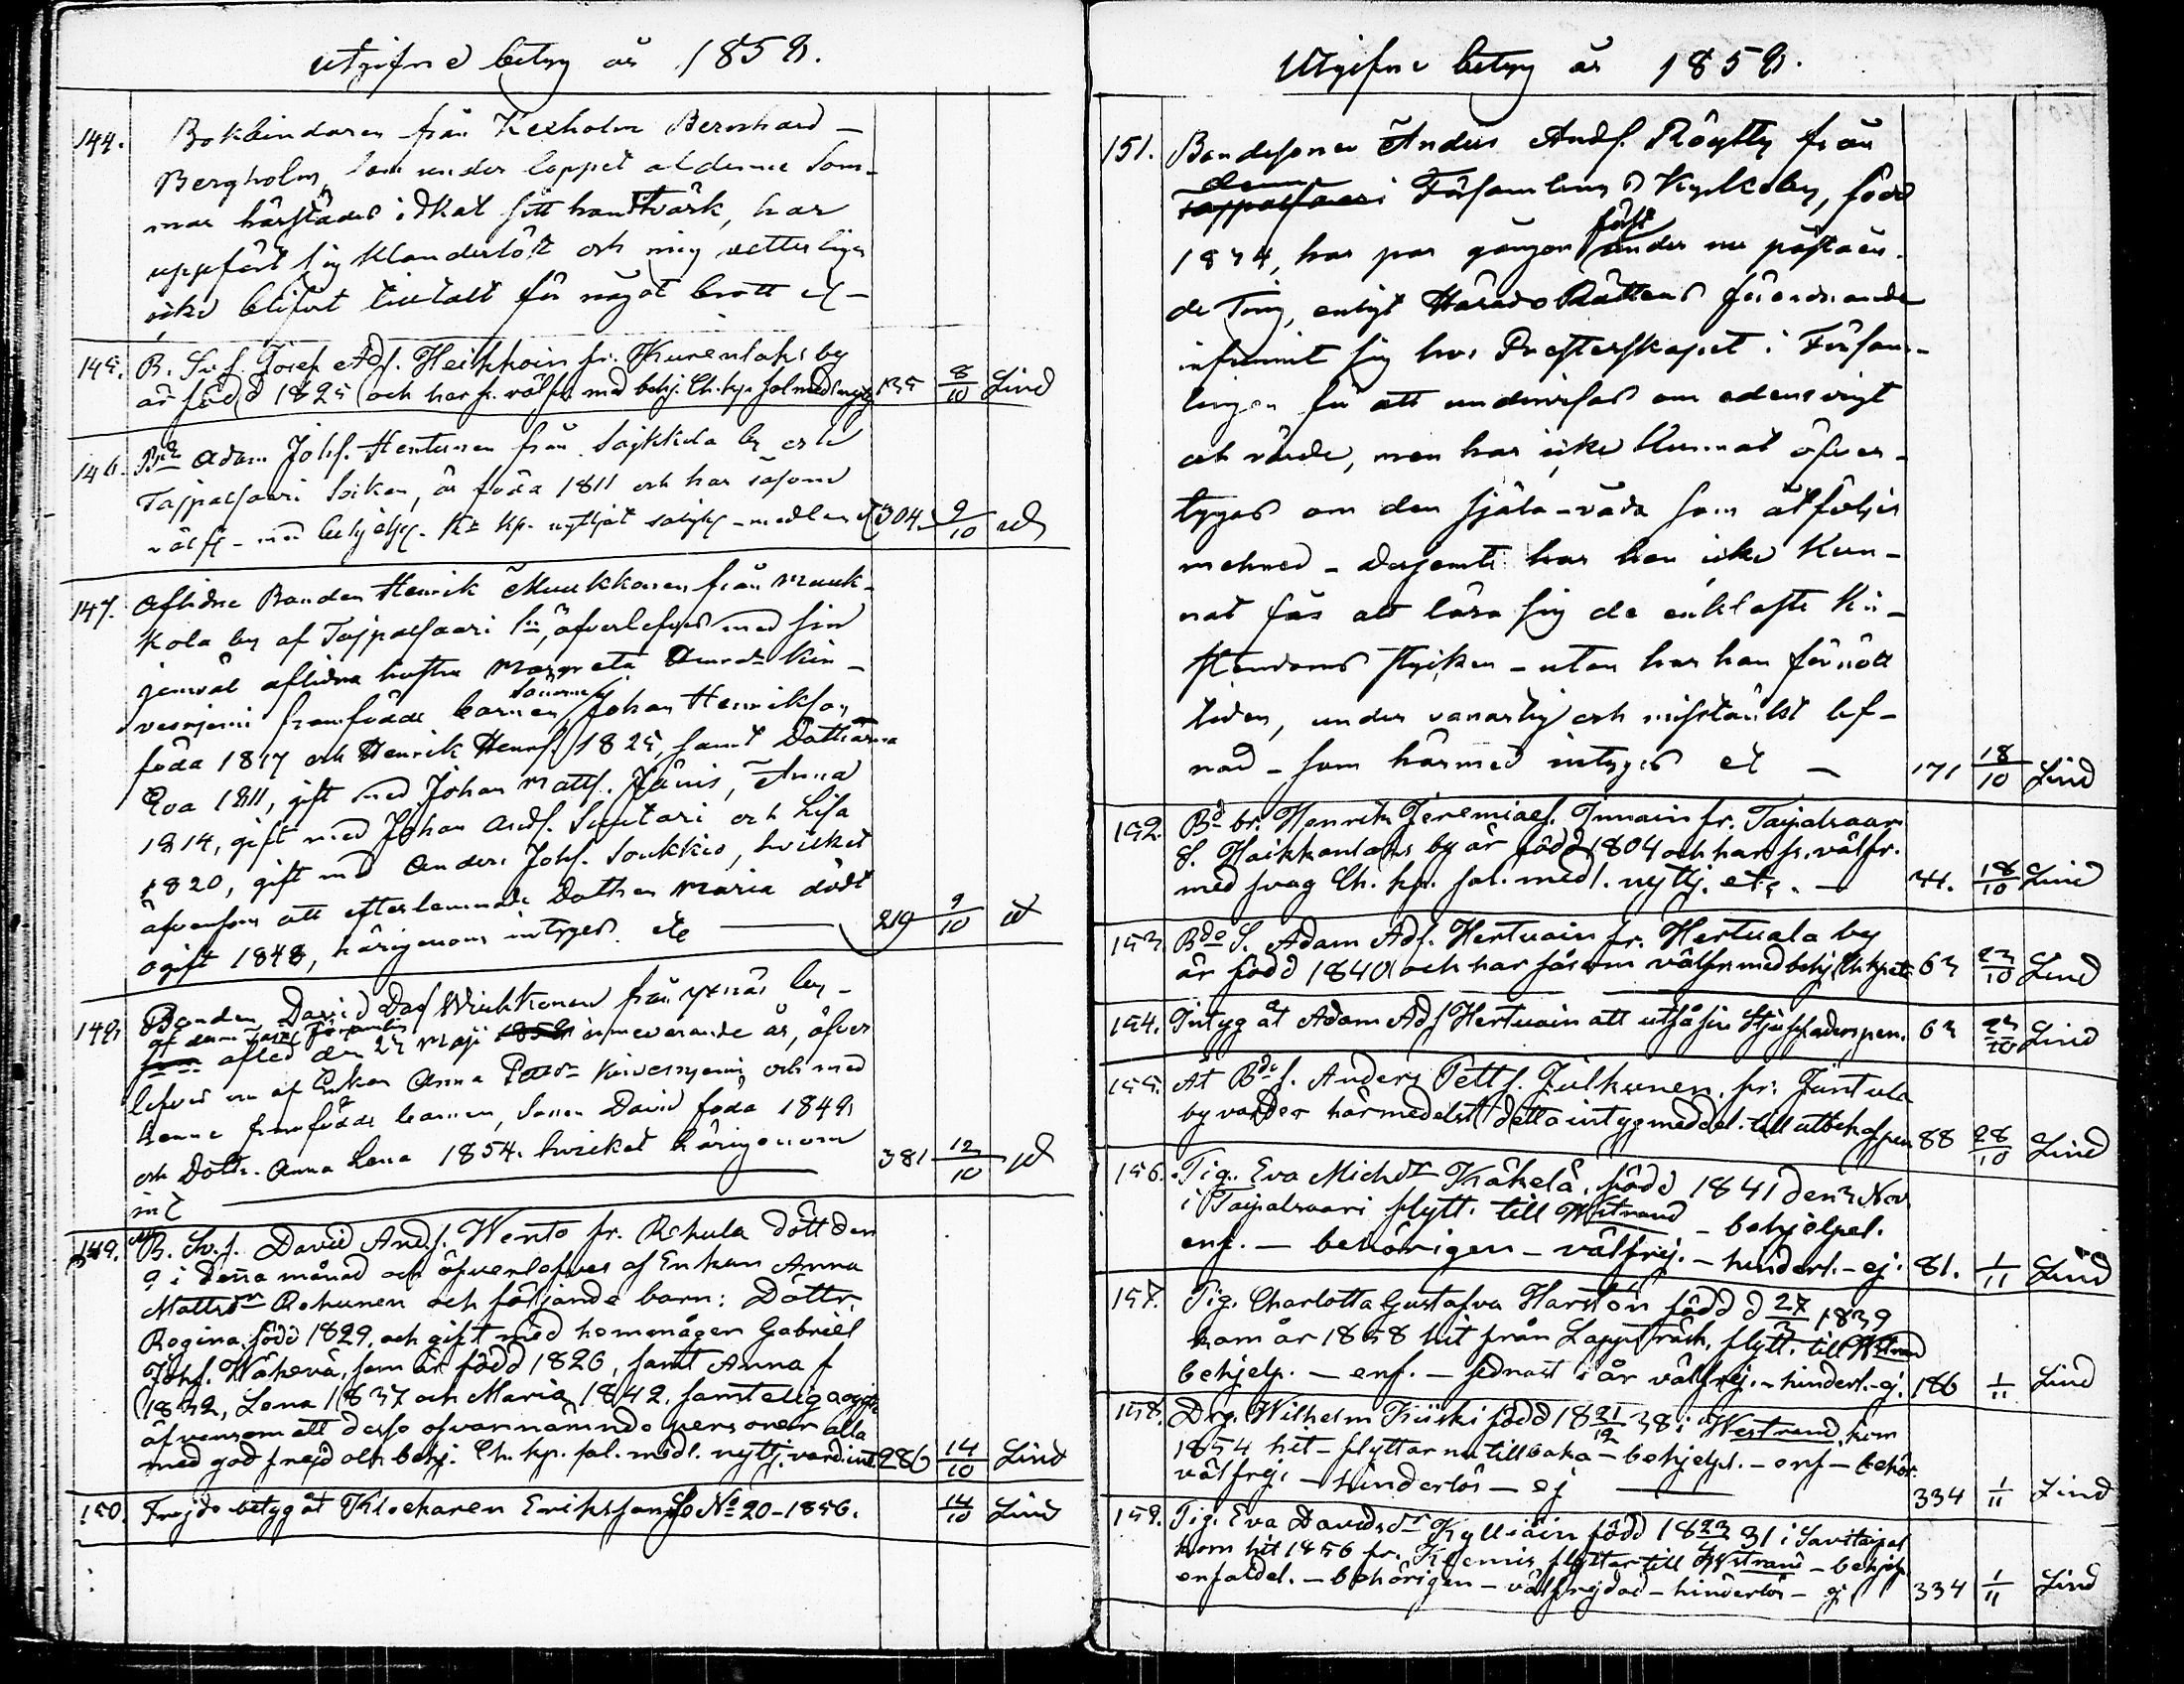 Utgifne betyg år 1859.
144. Bokbindaren från Kexholm Bernhard –
Bergholm, som under loppet af denna Som-
mar härstädes idkat sitt handtvärk, har
uppfört sig klanderlöst och mig vetterligen
icke blifvit tilltalt för något brott
145. B. Sv. s. Josef Adf. Heikkoin fr. Kurenlaks by
är född 1825 och har fr. välfr. med behj. Ch. kp. sal. med. nyttj. 135 8/10 Lind
146. Adam Johs. Hentunen från Saikkola by och
Taipalsaari Socken, är föda 1811 och har såsom
välfr – med behjelpl. kp. nyttjat salighs – medlen 304. 9/10
147. Aflidne Bonden Henrik Muukkonen från Muuk-
kola by af Taipalsaari S:n, öfverlefves med sin
jemväl aflidna hustru Margreta Henrdr Kir-
vesnjemi framfödde barnen, Sönerne Johan Henriksson
föda 1817 och Henrik Henrs. 1825, samt Döttrarna
Eva 1811, gift med Johan Matts. Jänis, Anna
1814, gift med Johan Ands. Suutari och Lisa
1820, gift med Anders Johs. Soukkio, hvilket
äfvensom att efterlemnade Dottren Maria dödt
ogift 1848, härigenom intygas etc 219 9/10
148. Bonden David Dav
af denna Församling
afled den 25 Maji 1859 innevarande år, öfver
lefves nu af Enkan Anna Kirvesnjemi och med
henne framfödde barnen, Sonen David föda 1849
och Dottr. Anna Lena 1854. hvilket härigenom 381 12/10
149. B. Sv. s. David And.s. Wento fr. Rehula dött den
9 i denna månad och öfverlefves af Enkan Anna
Mattsdr Rehunen och följande barn: Döttr.
Regina, född 1829, och gift med hemmågen Gabriel
Johs. Wäkevä, som är född 1826, samt Anna f
1832, Lena 1837 och Maria 1842. samtelig ogifte
äfvensom att desse ofvannämnde personer alla
med god frejd och behj. Ch. kp. sal. medl. nyttj. vard. int. 286 14/10 Lind
150. Frejde betyg åt Klockaren Eriksson Se No 20 – 1856. 14/10 Lind
Utgifne betyg år 1859.
151. Bondesonen Anders Ands. Röytty från
denna
Taipalsaari Församlings Kyrkoby, född
1834, har par gånger först under nu påståen-
de Ting, enligt Härads Rättens förordnande
infunnit sig hos Presterskapet i Försam-
lingen för att undervisas om edens vigt
och värde, men har icke kunnat öfver-
tygas om den själa-våda som åtföljer
mehned – desjemte har han icke kun-
nat fås att lära sig de enklaste Kri-
stendoms stycken – utan har han förnött
tiden, under vanartig och misstänkt lef-
nad – som härmed intygas etc – 171 18/10 Lind
152. Bd br. Henrik Jeremiaes. Innain fr. Taipalsaari
S. Haikkanlaks by är född 1804 och har fr. välfr.
med svag Ch. kp. sal. medl. nyttj. etc. – 34. 18/10 Lind
153. Bde S. Adam Adf. Hertuain fr. Hertuala by
är född 1840 och har såsom välfr. med behj. Ch. kp. etc 63 23/10 Lind
154. Intyg åt Adam Adf Hertuain att utfå sin Styfsfaders pen. 63 23/10 Lind
155. At Bde S. Anders Petts. Julkunen fr. Jäntula
by varder härmedelst detta intyg meddel. till utbek. af pen 88 28/10 Lind
156. Pig. Eva Michdr Kräkelä, född 1841 den 3 Nov.
i Taipalsaari flytt. till Wstrand – behjelpel.
enf. – behörigen – välfrej. – hinderl. – ej. 81. 1/11 Lind
157. Pig. Charlotta Gustafva Harston född d 27/3 1839
kom år 1858 hit från Lappträsk, flytt. till Wstrand
behjelp. – enf. – sednast i år välfrej. – hinderl. – ej. 186 1/11 Lind
158. Drg. Wilhelm Kiiski född 18 21/12 38 i Westrand, kom
1854 hit – flyttar nu tillbaka – behjelpl. – enf – behör.
välfrej. – hinderlös – ej 334 1/11 Lind
159. Pig. Eva Davidsdr Kylliäin född 18 23/ 31 i Savitaipal
kom hit 1856 fr. Klemis, flyttar till Wstrand – behjelp
enfaldel. – behörigen – välfrejdad – hinderlös – ej 334 1/11 Lind